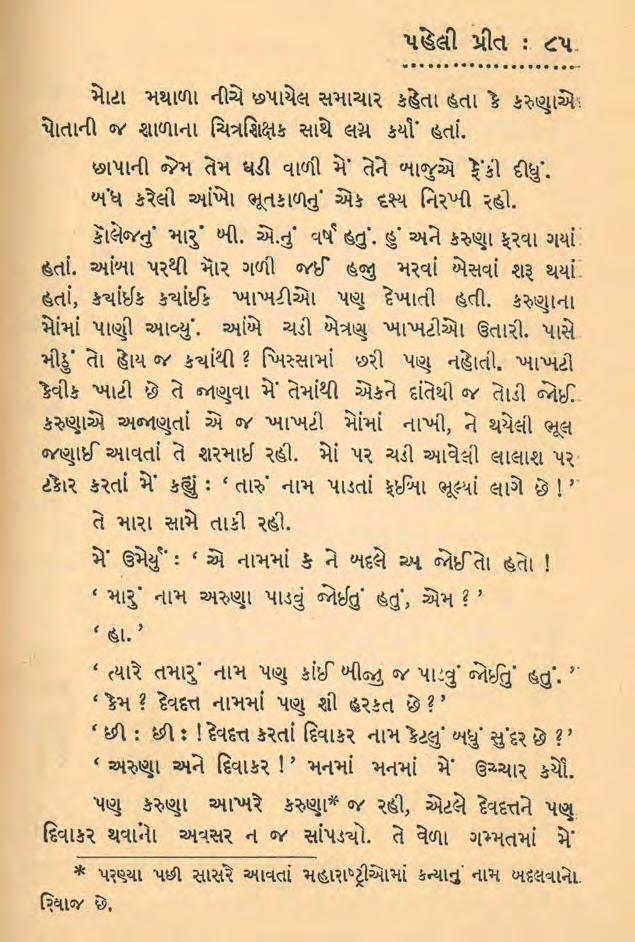 પહેલી પ્રીત : ૮૫
મોટા મથાળા નીચે છપાયેલ સમાચાર કહેતા હતા કે કરુણાએ
પોતાની જ શાળાના ચિત્રશિક્ષક સાથે લગ્ન કર્યાં હતાં.
છાપાની જેમ તેમ ઘડી વાળી મેં તેને બાજુએ ફેંકી દીધું.
બંધ કરેલી આંખો ભૂતકાળનું એક દૃશ્ય નિરખી રહી.
કૉલેજનું મારું બી. એ.નું વર્ષ હતું. હું અને કરુણા ફરવા ગયાં
હતાં. આંબા પરથી મૉર ગળી જઈ હજી મરવાં બેસવાં શરૂ થયાં
હતાં, કયાંઈક કયાંઈક ખાખટીઓ પણ દેખાતી હતી. કરુણાના
મોંમાં પાણી આવ્યું. આંબે ચડી બેત્રણ ખાખટીઓ ઉતારી. પાસે
મીઠું તો હોય જ કયાંથી ? ખિસ્સામાં છરી પણ નહોતી. ખાખટી
કેવીક ખાટી છે તે જાણવા મેં તેમાંથી એકને દાંતેથી જ તોડી જોઈ.
કરુણાએ અજાણતાં એ જ ખાખટી મોંમાં નાખી, ને થયેલી ભૂલ
જણાઈ આવતાં તે શરમાઈ રહી. મોં પર ચડી આવેલી લાલાશ પર
ટકોર કરતાં મેં કહ્યું : ‘ તારું નામ પાડતાં ફઈબા ભૂલ્યાં લાગે છે ! ’
તે મારા સામે તાકી રહી.
મેં ઉમેર્યું : ‘ એ નામમાં ક ને બદલે અ જોઈતો હતો !
‘ મારું નામ અરુણા પાડવું જોઈતું હતું, એમ ? ’
‘ હા. ’
‘ ત્યારે તમારું નામ પણ કાંઈ બીજું જ પાડવું જોઈતું હતું. ’
‘ કેમ ? દેવદત્ત નામમાં પણ શી હરકત છે ? ’
‘ છી : છી : ! દેવદત્ત કરતાં દિવાકર નામ કેટલું બધું સુંદર છે ? ’
‘ અરુણા અને દિવાકર ! ’ મનમાં મનમાં મેં ઉચ્ચાર કર્યો.
પણ કરુણા આખરે કરુણા* જ રહી, એટલે દેવદત્તને પણ
દિવાકર થવાનો અવસર ન જ સાંપડયો. તે વેળા ગમ્મતમાં મેં
* પરણ્યા પછી સાસરે આવતાં મહારાષ્ટ્રીઓમાં કન્યાનું નામ બદલવાનો
રિવાજ છે.